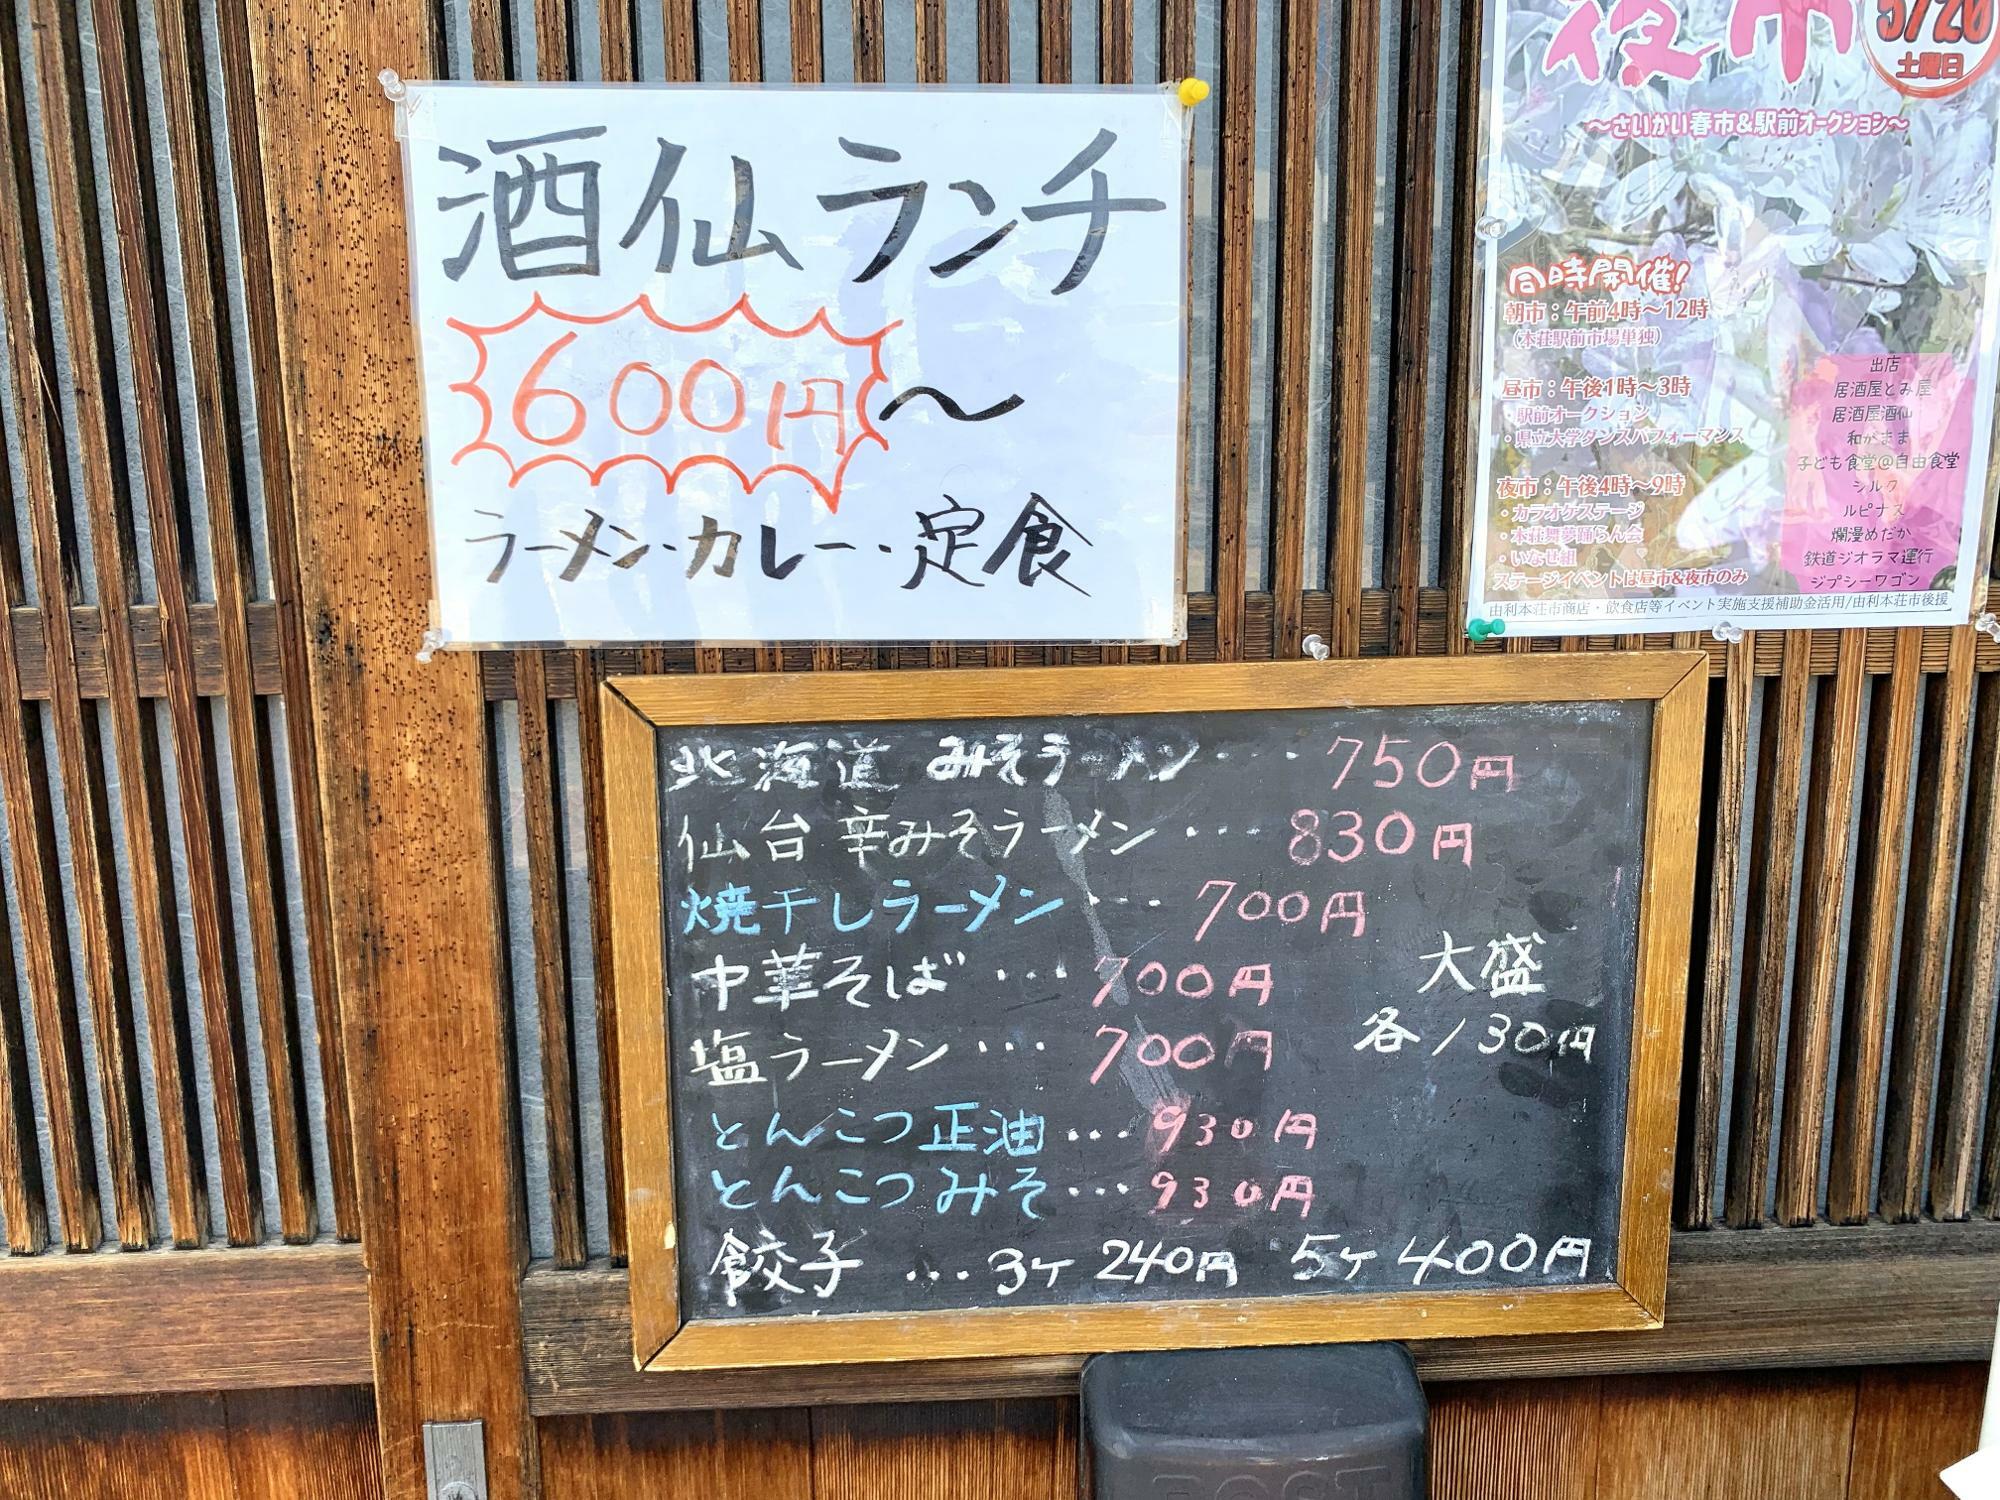 酒仙ランチ
600円〜
ラーメン・カレー・定食
夜市
5/20
土曜日
〜さいかい春市&駅前オークション〜
同時開催!
朝市：午前4時〜12時
(本荘駅前市場単独)
昼市：午後1時〜3時
・駅前オークション
・県立大学ダンスパフォーマンス
夜市：午後4時〜9時
・カラオケステージ
・本荘舞夢踊らん会
・いなせ組
ステージイベントは昼市&夜市のみ
出店
居酒屋とみ屋
居酒屋酒仙
和がまま
子ども食堂@自由食堂
シルク
ルピナス
爛漫めだか
鉄道ジオラマ運行
ジプシーワゴン
由利本荘市商店・飲食店等イベント実施支援補助金活用/由利本荘市後援
北海道 みそラーメン・・・750円
仙台 辛みそラーメン・・・830円
焼干しラーメン・・・700円
中華そば・・・700円
塩ラーメン・・・700円
大盛
各/30円
とんこつ正油・・・930円
とんこつみそ・・・930円
餃子・・・3ヶ 240円 5ヶ 400円
POST